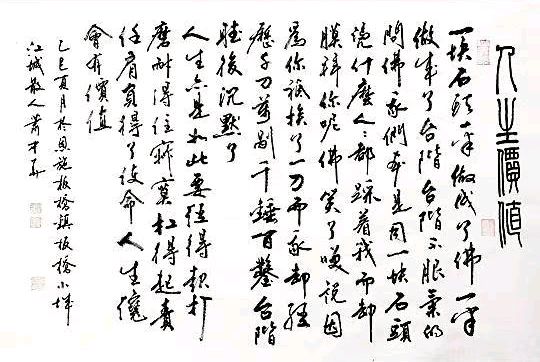 人生價值
一块石頭一半做成了佛一半
做成了台階台階不服氣的
問佛我們本是同一块石頭
凭什麼人々都踩着我而却
膜拜你呢佛笑了嘆説因
爲你祗挨了一刀而我却經
歷千刀萬剮千錘百鑿台階
聽後沉默了
人生亦是如此要經得起打
磨耐得住寂寞扛得起責
任肩負得了使命人生纔
會有價值
乙巳夏月於恩施板橋鎮板橋小城
江城散人